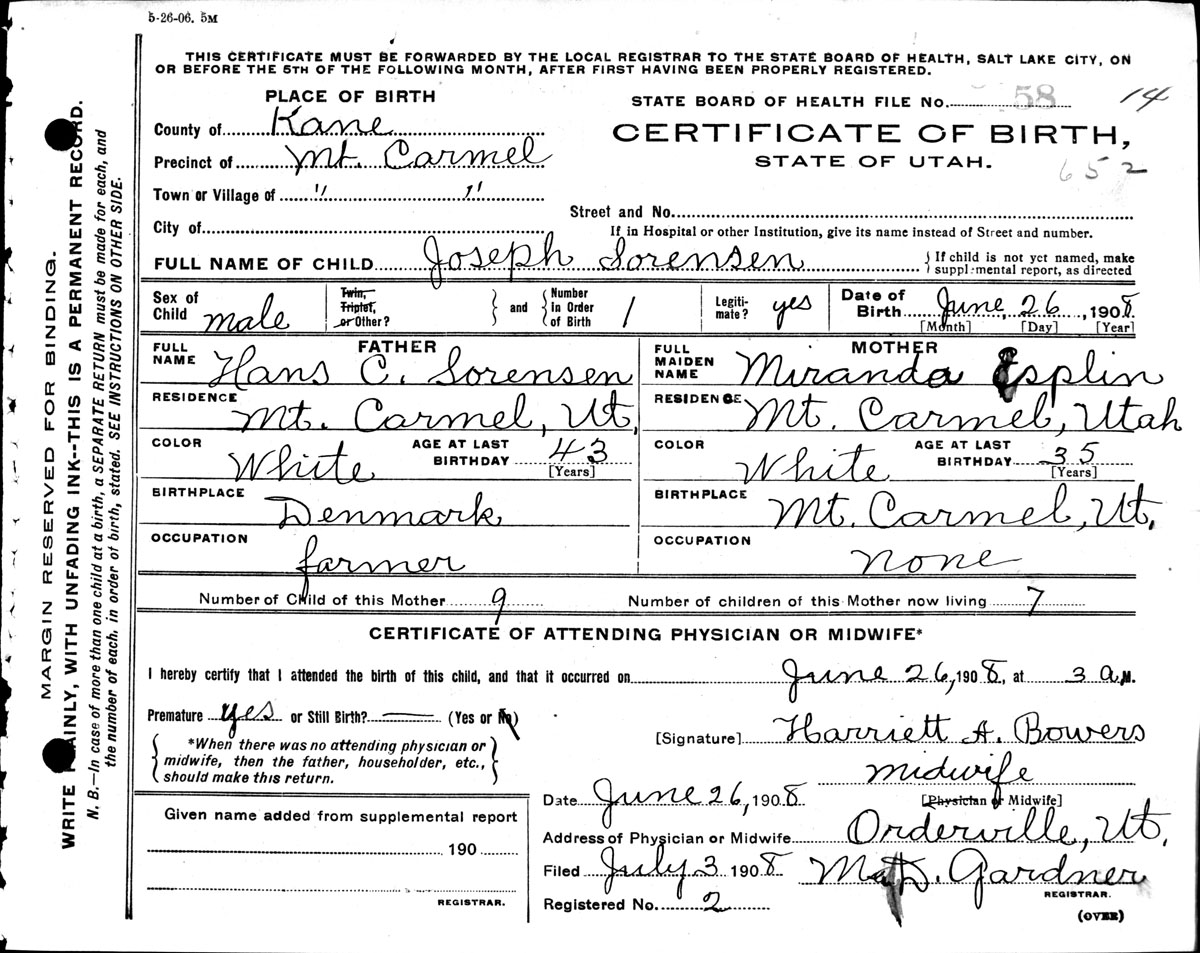 5-26-06. 5M
THIS CERTIFICATE MUST BE FORWARDED BY THE LOCAL REGISTRAR TO THE STATE BOARD OF HEALTH, SALT LAKE CITY, ON
OR BEFORE THE 5TH OF THE FOLLOWING MONTH, AFTER FIRST HAVING BEEN PROPERLY REGISTERED.
PLACE OF BIRTH
STATE BOARD OF HEALTH FILE NO. 58 14
County of Kane
CERTIFICATE OF BIRTH,
Precinct of Mt. Carmel
STATE OF UTAH.
652
Town or Village of " "
Street and No.
City of
If in Hospital or other Institution, give its name instead of Street and number.
FULL NAME OF CHILD Joseph Sorensen { If child is not yet named, make
supplemental report, as directed
Sex of Child male Twin, Triplet, or Other? } and { Number in Order of Birth 1 Legitimate? yes Date of Birth June, 26, 1908
[Month] [Day] [Year]
FATHER MOTHER
FULL NAME Hans C. Sorensen FULL MAIDEN NAME Miranda Esplin
RESIDENCE Mt. Carmel, Ut, RESIDENCE Mt. Carmel, Utah
COLOR White AGE AT LAST BIRTHDAY 43 [Years] COLOR White AGE AT LAST BIRTHDAY 35 [Years]
BIRTHPLACE Denmark BIRTHPLACE Mt. Carmel, Ut,
OCCUPATION farmer OCCUPATION none
Number of Child of this Mother 9 Number of children of this Mother now living 7
CERTIFICATE OF ATTENDING PHYSICIAN OR MIDWIFE*
I hereby certify that I attended the birth of this child, and that it occurred on June 26, 1908, at 3 a.M.
Premature yes or Still Birth? — (Yes or No)
*When there was no attending physician or
midwife, then the father, householder, etc.,
should make this return.
[Signature] Harriett A. Bowers
midwife
Date June 26, 1908 [Physician or Midwife]
Given name added from supplemental report
190
REGISTRAR.
Address of Physician or Midwife Orderville, Ut.
Filed July 3 1908 Gardner
REGISTRAR.
Registered No. 2
(OVER)
MARGIN RESERVED FOR BINDING.
WRITE PLAINLY, WITH UNFADING INK--THIS IS A PERMANENT RECORD.
N. B.—In case of more than one child at a birth, a SEPARATE RETURN must be made for each, and
the number of each, in order of birth, stated. SEE INSTRUCTIONS ON OTHER SIDE.